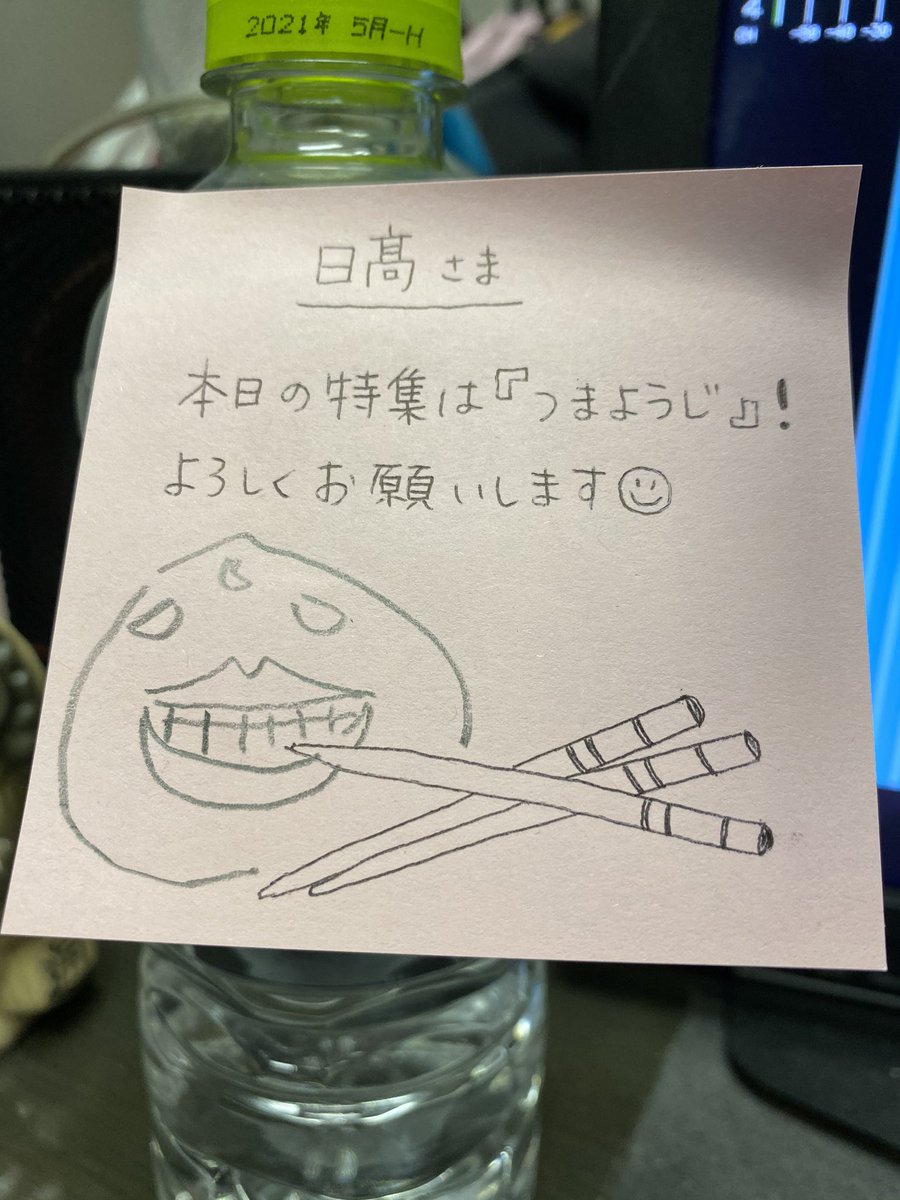 2021年 5月-H
4
CH
-50 -40 -30
日髙さま
本日の特集は『つまようじ』!
よろしくお願いします☺